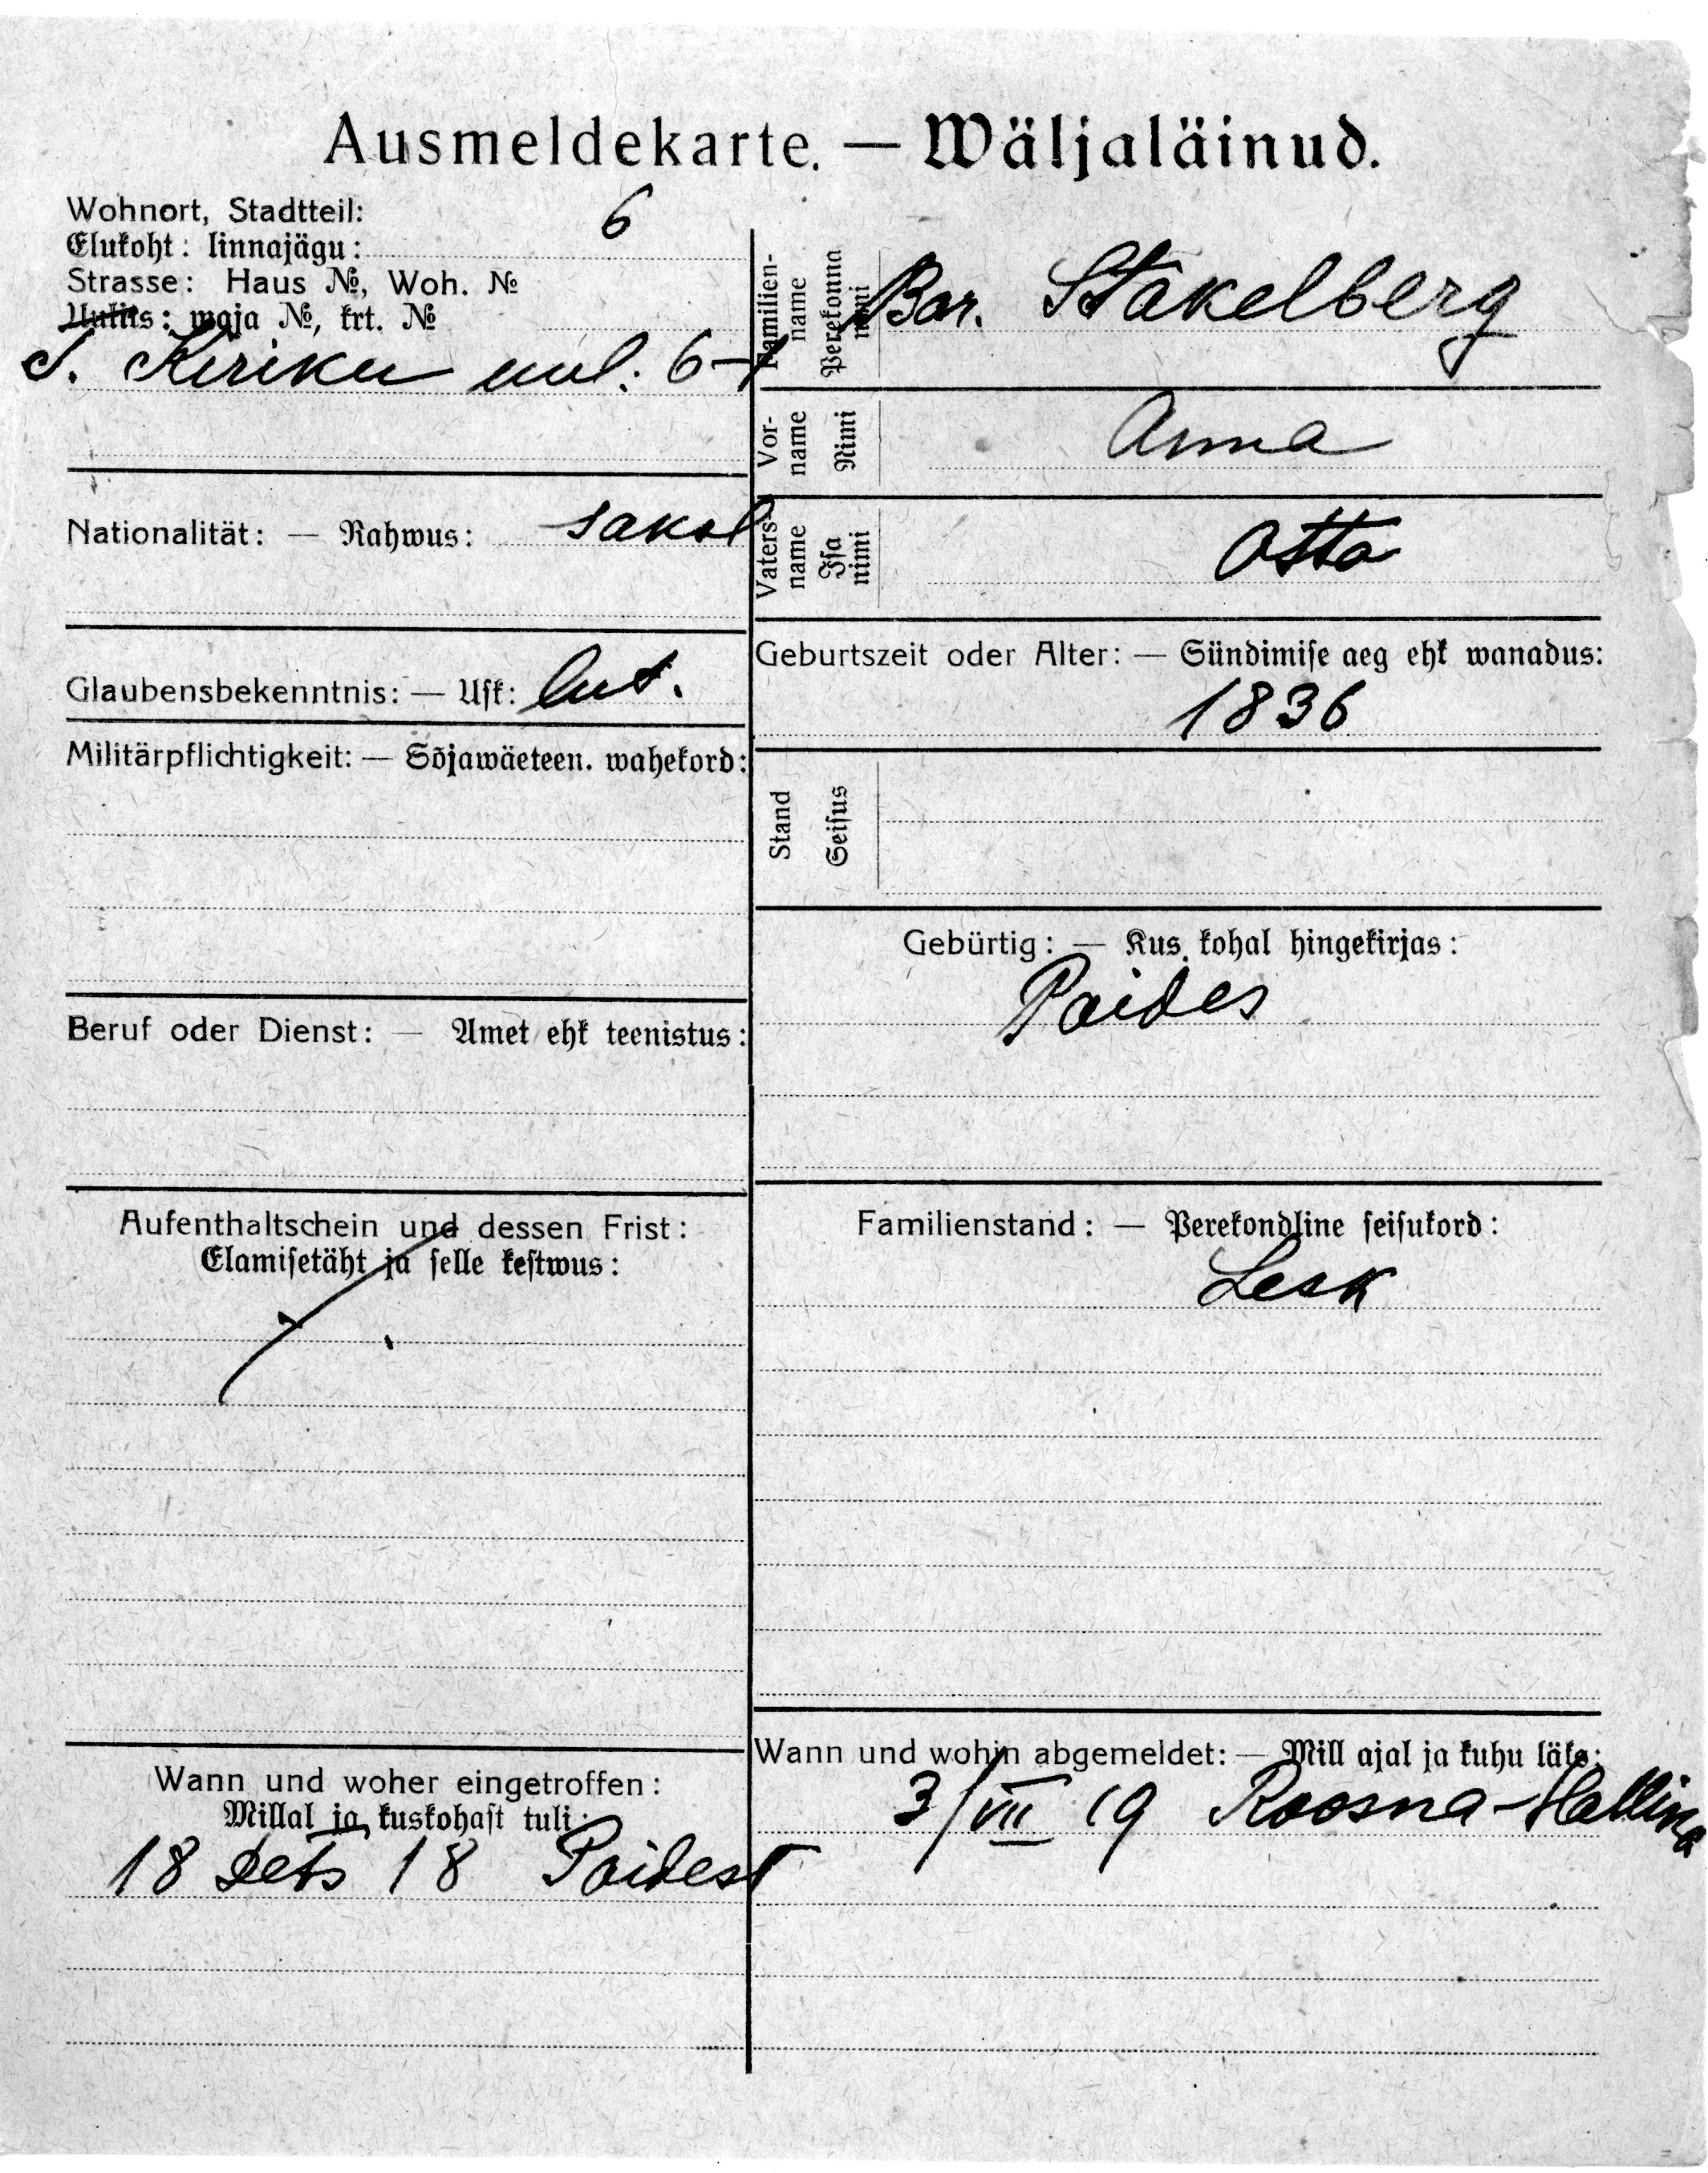 Ausmeldekarte. — Wäljaläinud.
Wohnort, Stadtteil: 6
Elukoht: linnajägu:
Strasse: Haus №, Woh. №
Uulits: maja №, krt. №
S. Kiriku uul: 6-1
Nationalität: — Rahwus: saksl
Glaubensbekenntnis: — Usk: lut.
Militärpflichtigkeit: — Sõjawäeteen. wahekord:
Beruf oder Dienst: — Amet ehk teenistus:
Aufenthaltschein und dessen Frist:
Elamisetäht ja selle kestwus:
Wann und woher eingetroffen:
Millal ja kuskohast tuli:
18 Dets 18 Paidest
Familien-name Perekonna nimi Bar. Stakelberg
Vor-name Nimi Anna
Vaters-name Isa nimi Otto
Geburtszeit oder Alter: — Sündimise aeg ehk wanadus:
1836
Stand Seisus
Gebürtig: — Kus kohal hingekirjas:
Paides
Familienstand: — Perekondline seisukord:
Lesk
Wann und wohin abgemeldet: — Mill ajal ja kuhu läks:
3/VII 19 Roosna-Hallina